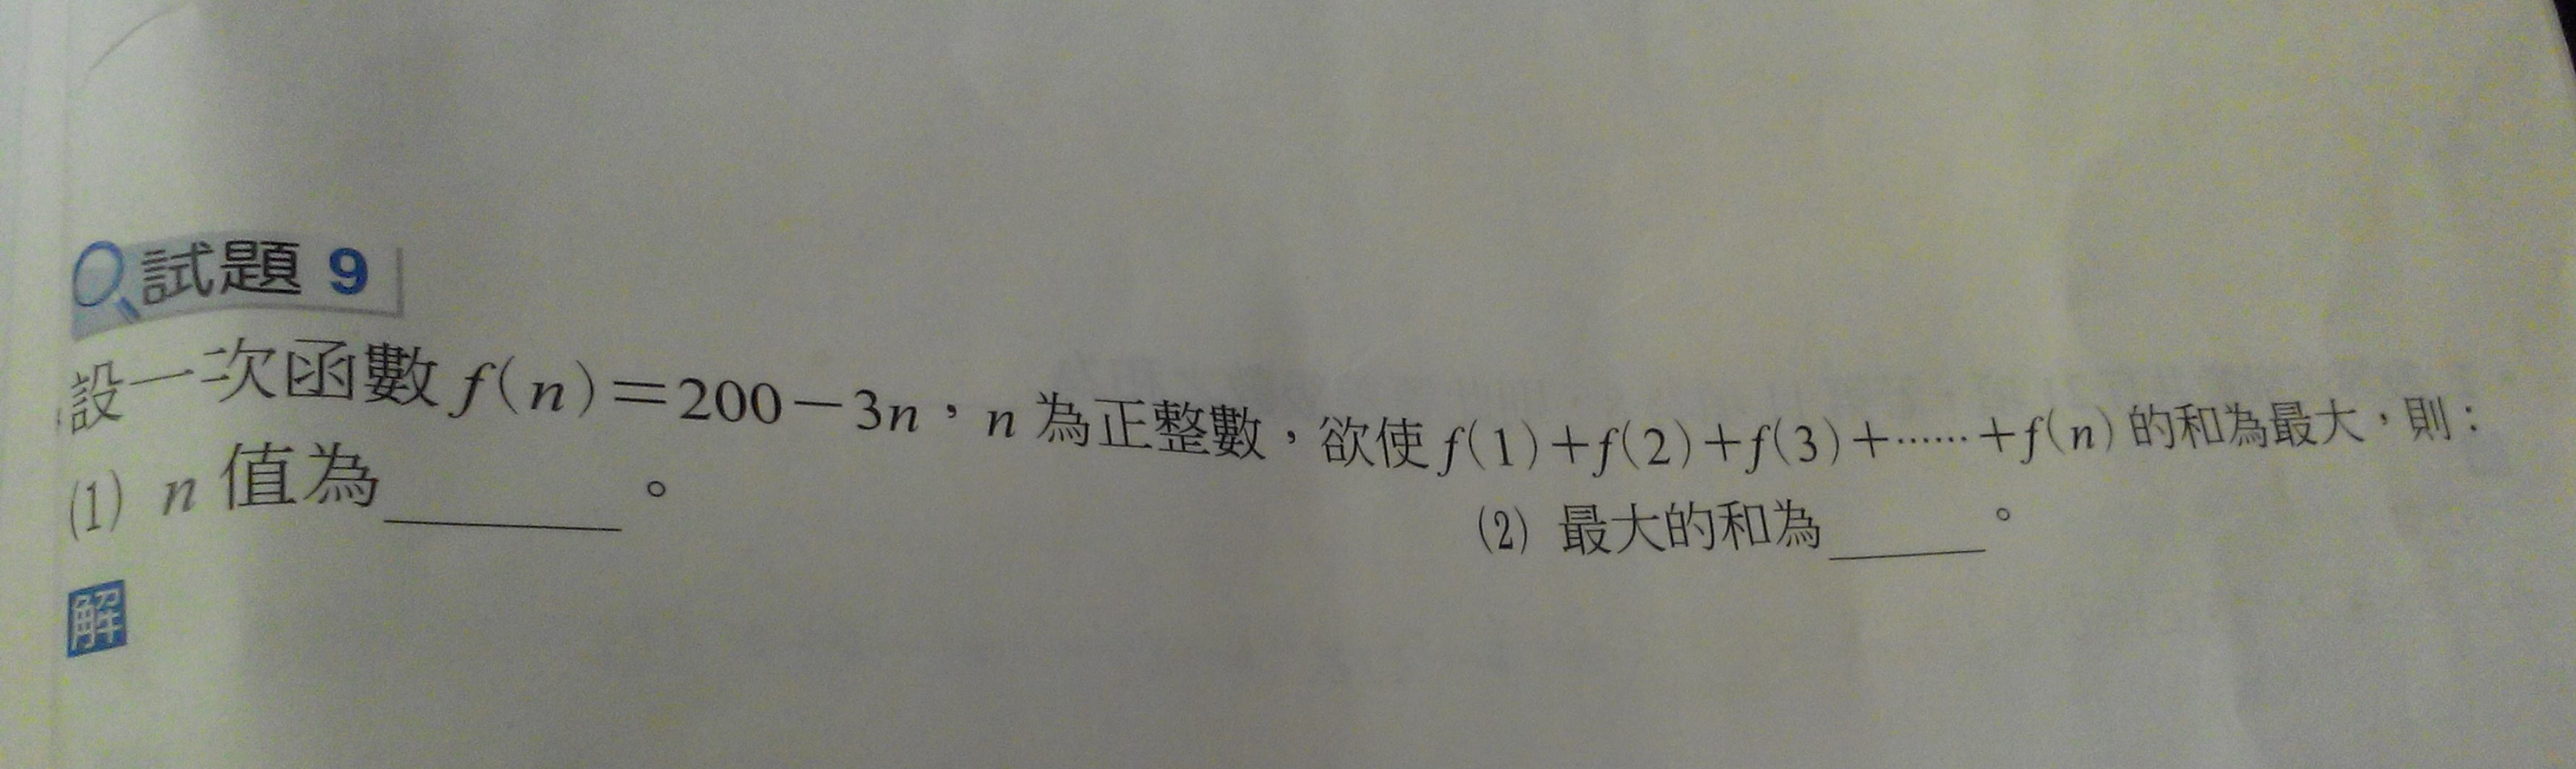 試題 9
設一次函數 f(n)=200-3n，n 為正整數，欲使 f(1)+f(2)+f(3)+……+f(n) 的和為最大，則：
(1) n 值為______。 (2) 最大的和為______。
解